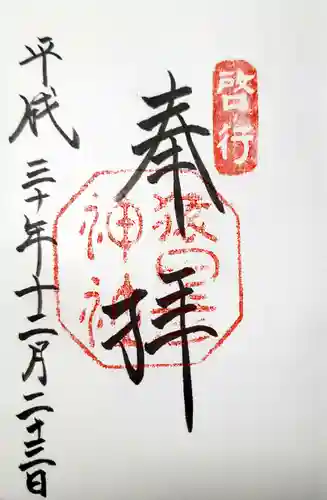 啓行
奉拝
猿田彦
神社
平成三十年十二月二十三日